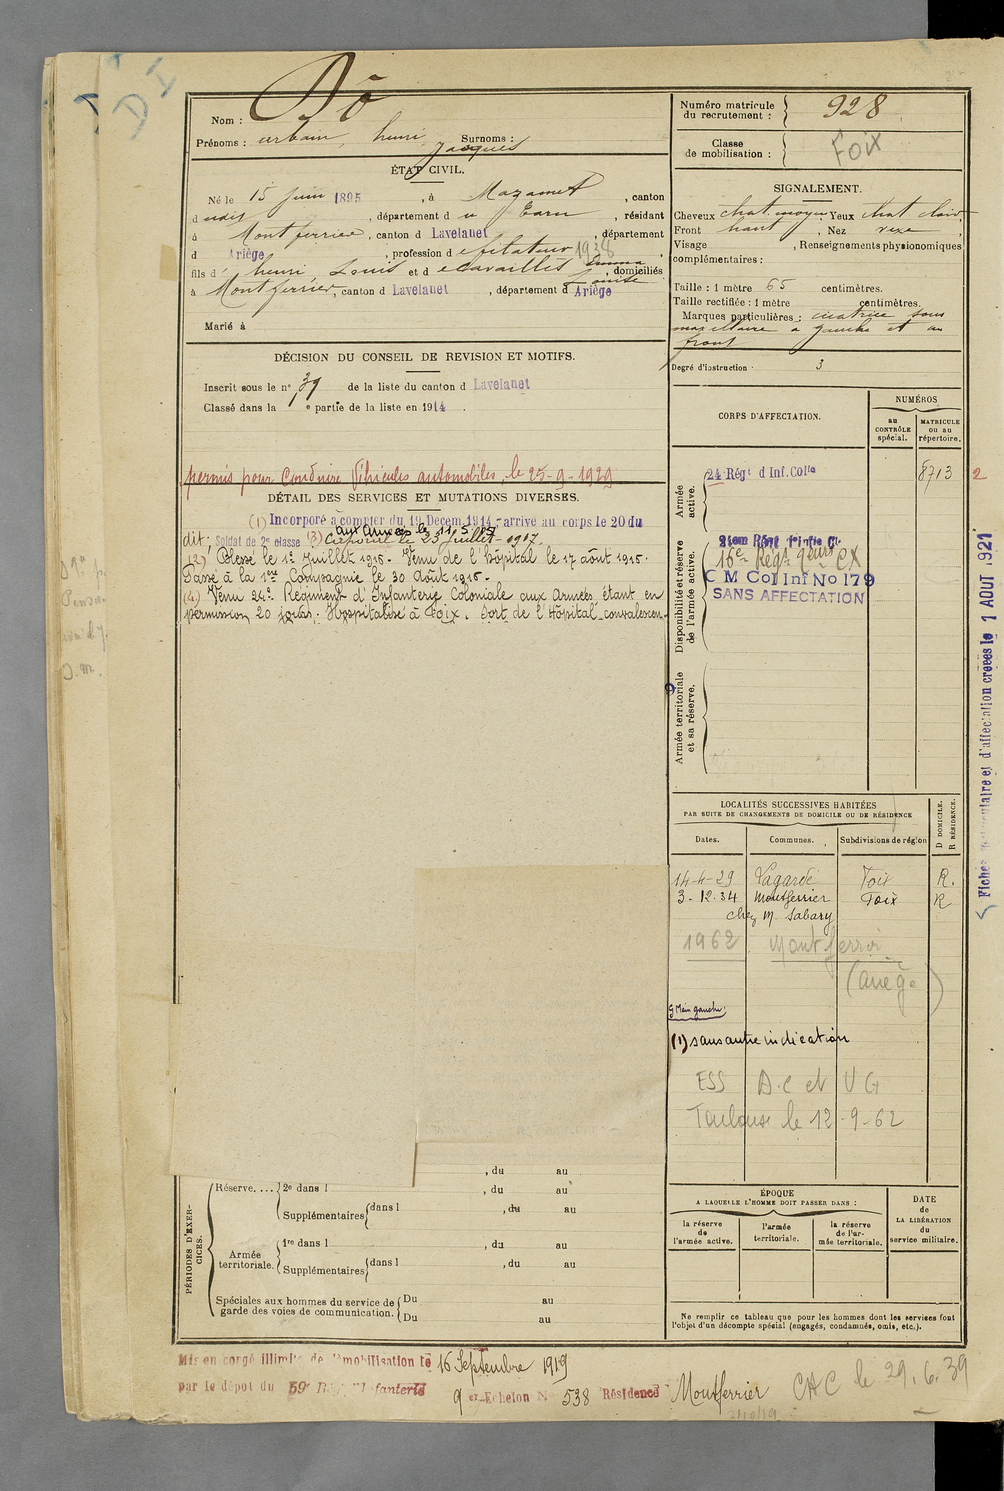 Bô
Nom :
Prénoms : urbain, henri Surnoms :
jacques
ÉTAT CIVIL.
Né le 15 juin 1895, à Mazamet, canton
d udit, département d u Tarn, résidant
à Montferrier, canton d Lavelanet, département
d Ariège, profession d e filateur 1938
fils d' henri, Louis et d e Cavaillès Emma, domiciliés
Louise
à Montferrier, canton d Lavelanet, département d Ariège
Marié à
DÉCISION DU CONSEIL DE REVISION ET MOTIFS.
Inscrit sous le n° 39 de la liste du canton d Lavelanet
Classé dans la 1e partie de la liste en 1914.
permis pour Conduire Véhicules automobiles, le 25-9-1929
DÉTAIL DES SERVICES ET MUTATIONS DIVERSES.
(1) Incorporé à compter du 19 Decem. 1914 - arrivé au corps le 20 du
aux armées le 11.5.15
dit; Soldat de 2e classe (3) Caporal le 23 juillet 1917.
(2) Blessé le 1er Juillet 1915. Venu de l'hôpital le 17 août 1915.
Passé à la 1ère Compagnie le 30 Août 1915.
(4) Venu 24e Régiment d'Infanterie Coloniale aux Armées étant en
permission 20 jours. Hospitalisé à Foix. Sort de l'Hôpital - convalescen-
Numéro matricule
du recrutement : 928
Classe
de mobilisation : Foix
SIGNALEMENT.
Cheveux chat. moyen Yeux chat clair
Front haut, Nez vexe,
Visage , Renseignements physionomiques
complémentaires :
Taille : 1 mètre 65 centimètres.
Taille rectifiée : 1 mètre centimètres.
Marques particulières : cicatrice sous
maxillaire a gauche et au
front
Degré d'instruction : 3
CORPS D'AFFECTATION.
NUMÉROS
au CONTRÔLE spécial.
MATRICULE ou au répertoire.
Armée active.
24 Régt d'Inf. Colle
8713
2
Disponibilité et réserve de l'armée active.
16e Régt
C M Col Inf No 179
SANS AFFECTATION
Armée territoriale et sa réserve.
Fiches matriculaire et d'affectation créées le 1 AOUT 1921
LOCALITÉS SUCCESSIVES HABITÉES
PAR SUITE DE CHANGEMENTS DE DOMICILE OU DE RÉSIDENCE
D DOMICILE.
R RÉSIDENCE.
Dates. Communes. Subdivisions de région
14-4-29 Lagarde Foix R.
3-12-34 Montferrier Foix R
chez M. Sabary
1962 Montferrier
(Ariège)
G Main gauche.
(1) sans autre indication
ESS D.C et V G
Toulouse le 12-9-62
, du au
Réserve.... 2e dans l , du au
Supplémentaires dans l , du au
PÉRIODES D'EXERCICES.
Armée territoriale. 1re dans l , du au
Supplémentaires dans l , du au
Spéciales aux hommes du service de Du au
garde des voies de communication. Du au
ÉPOQUE
A LAQUELLE L'HOMME DOIT PASSER DANS :
la réserve de l'armée active.
l'armée territoriale.
la réserve de l'armée territoriale.
DATE de LA LIBÉRATION du service militaire.
Ne remplir ce tableau que pour les hommes dont les services font
l'objet d'un décompte spécial (engagés, condamnés, omis, etc.).
Mis en congé illimité de démobilisation le 16 Septembre 1919
par le dépôt du 59e Régt d'Infanterie
9 er Echelon N° 538 Résidence Montferrier CAC le 29.6.39